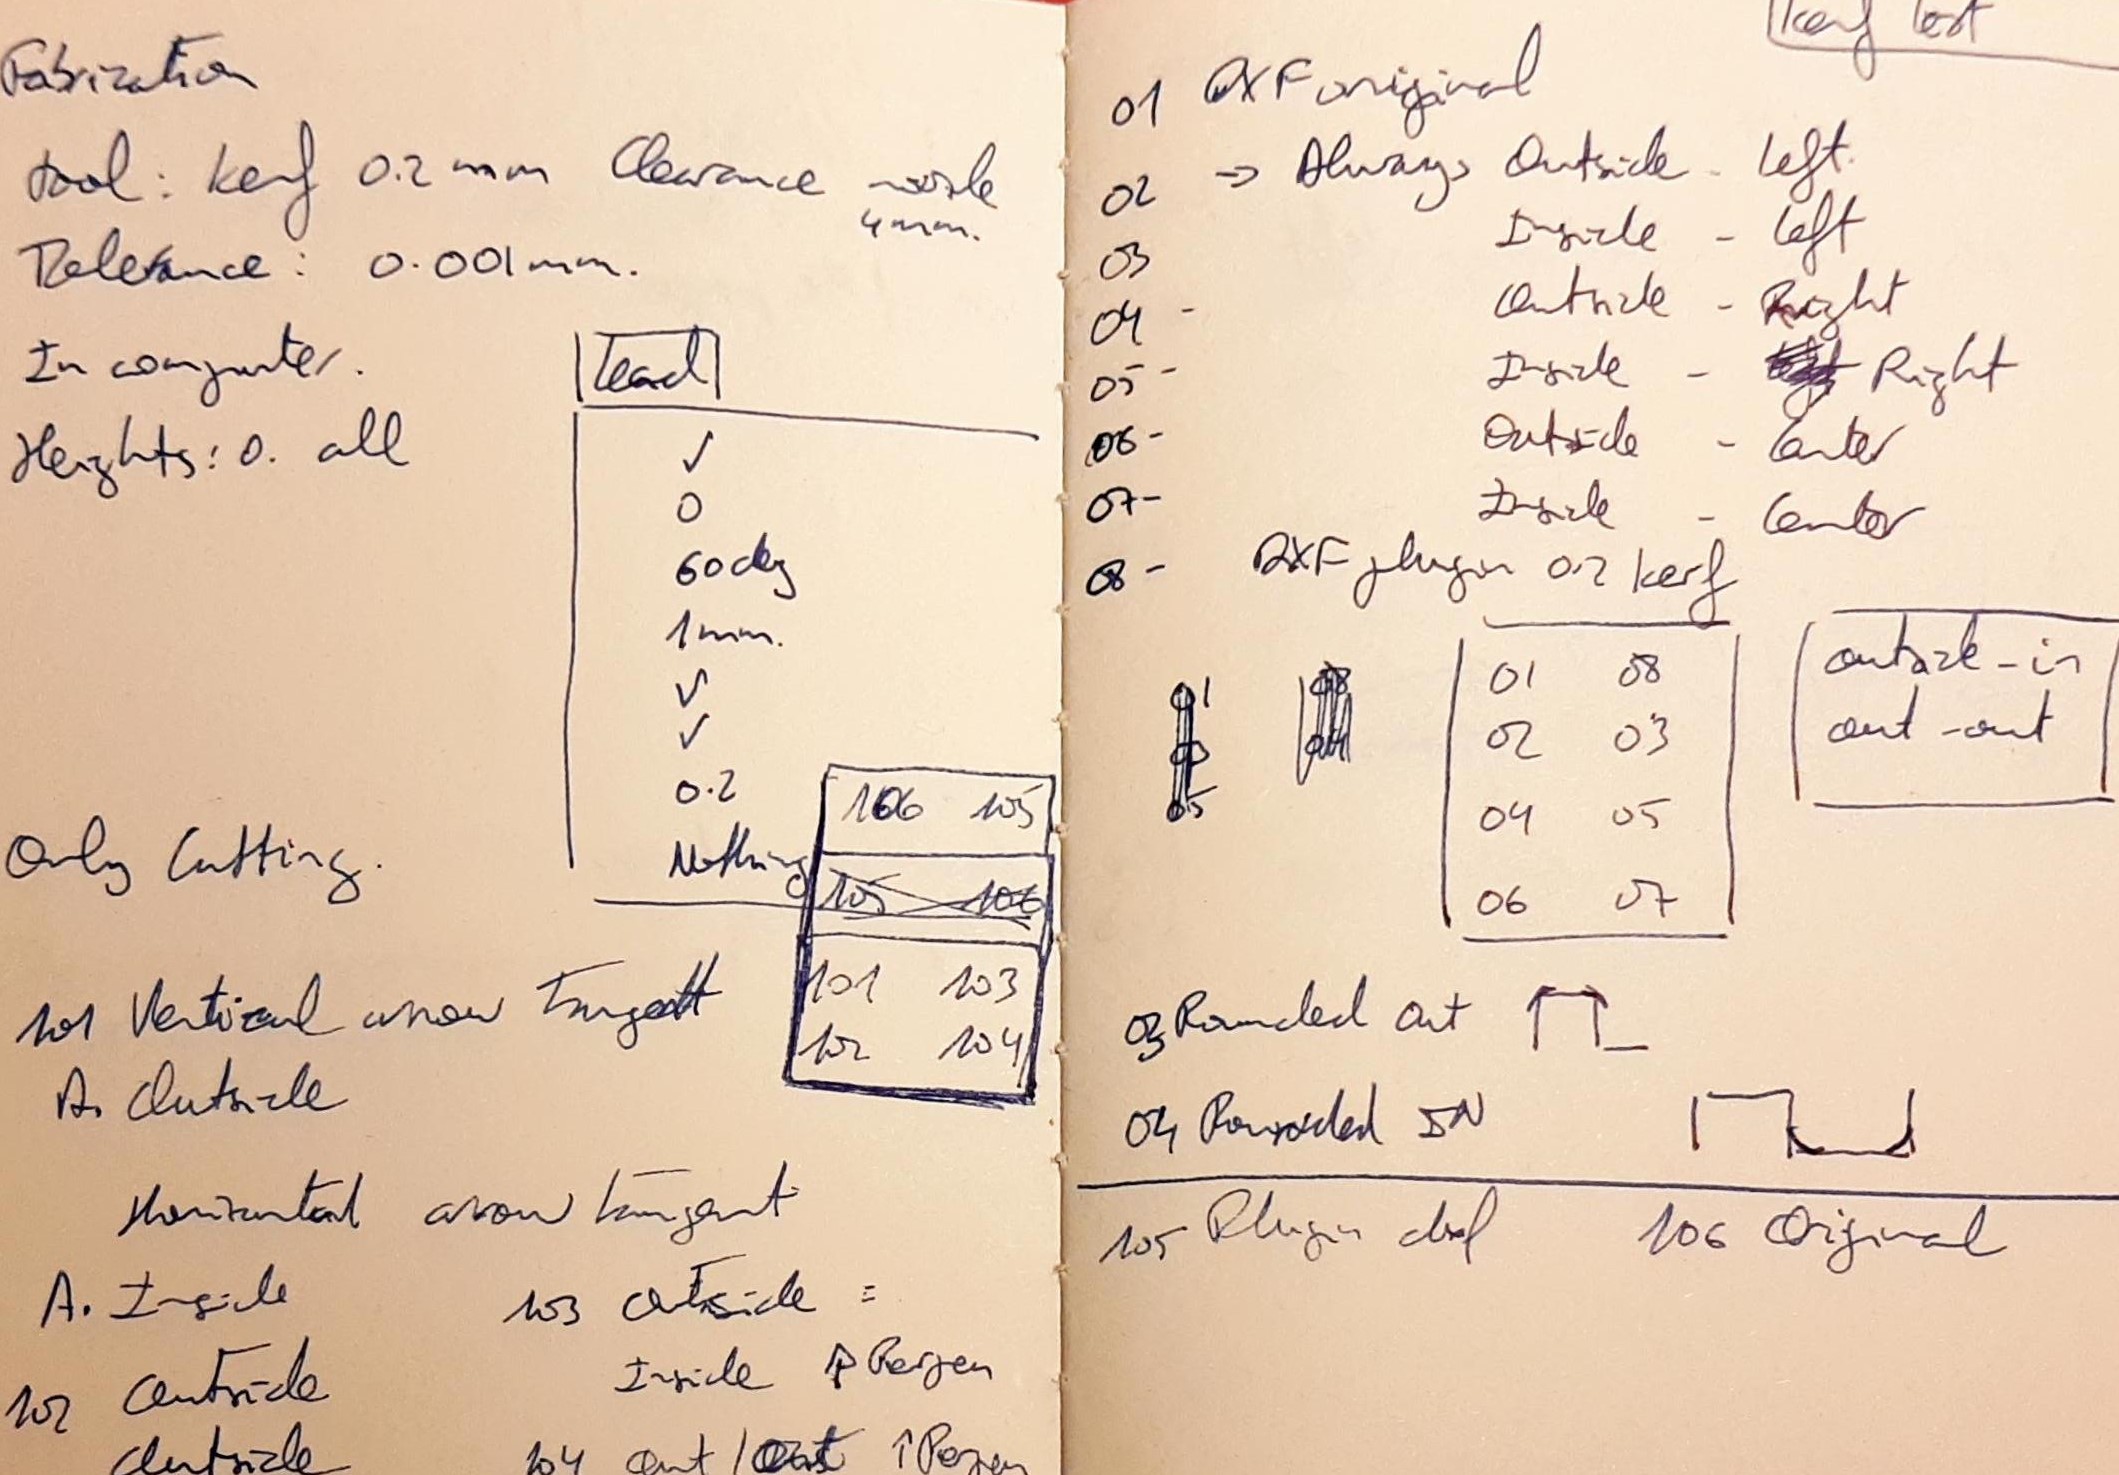 Fabrication
tool: kerf 0.2 mm Clearance nozzle
4mm.
Tolerance: 0.001mm.
In computer.
Heights: 0. all
Lead
✓
0
60deg
1mm.
✓
✓
0.2
Nothing
Only Cutting.
106 105
105 106
101 103
102 104
101 Vertical arrow Tangent
A. Outside
Horizontal arrow tangent
A. Inside
102 Outside
Outside
103 Outside =
Inside ↑
104 out / Out ↑
Kerf test
01 DXF original
02 → Always Outside - left.
03 Inside - left
04 - Outside - Right
05 - Inside - Right
06 - Outside - Center
07 - Inside - Center
08 - DXF plugin 0.2 kerf
01
03
05
01 08
02 03
04 05
06 07
outside - in
out - out
03 Rounded out
04 Rounded IN
105 Plugin dxf 106 Original